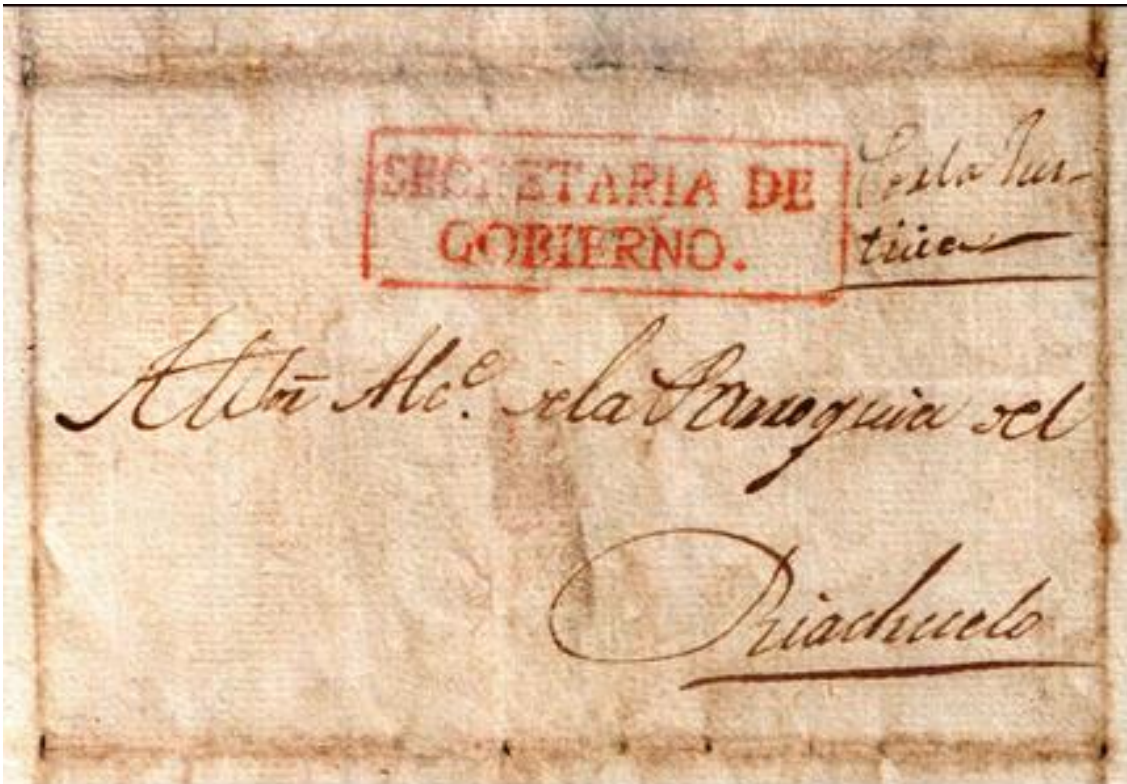 SECRETARIA DE
GOBIERNO.
Al Sõr Alc.ᵉ dela Parroquia del
Riachuelo